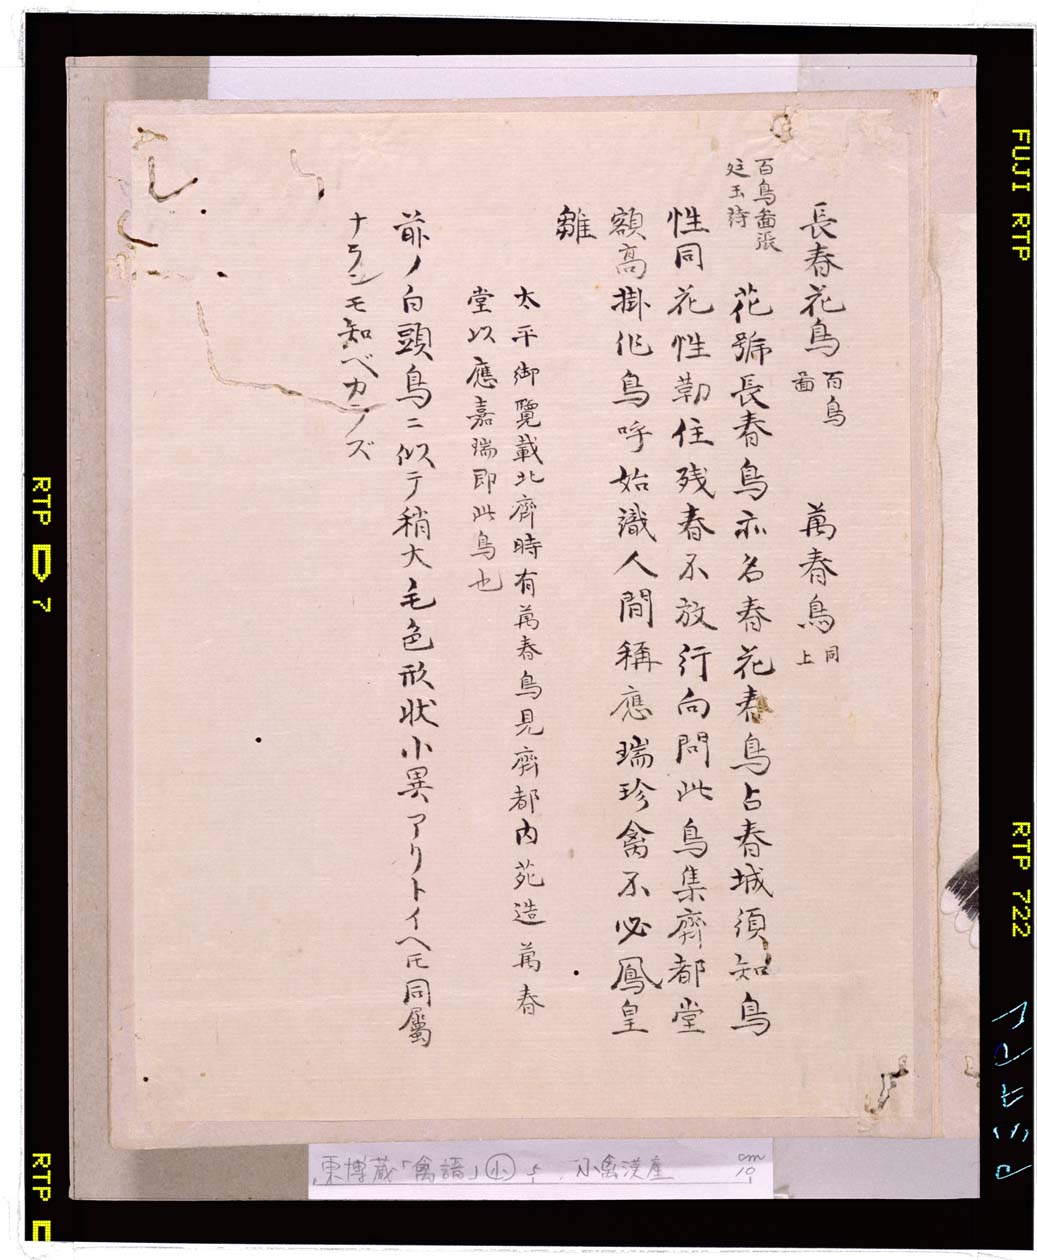 長春花鳥 百鳥圖 萬春鳥 同上
百鳥啚張廷玉詩
花號長春鳥亦名春花春鳥占春城須知鳥
性同花性勒住残春不放行向問此鳥集齊都堂
額高掛作鳥呼始識人間稱應瑞珍禽不必鳳皇
雛
太平御覽載北齊時有萬春鳥見齊都内苑造萬春
堂以應嘉瑞即此鳥也
前ノ白頭鳥ニ似テ稍大毛色形状小異アリトイヘ𪜈同屬
ナランモ知ベカラズ
東博蔵「禽譜」小 5 小禽漢産
cm
10
FUJI RTP
RTP 722
RTP 7
RTP